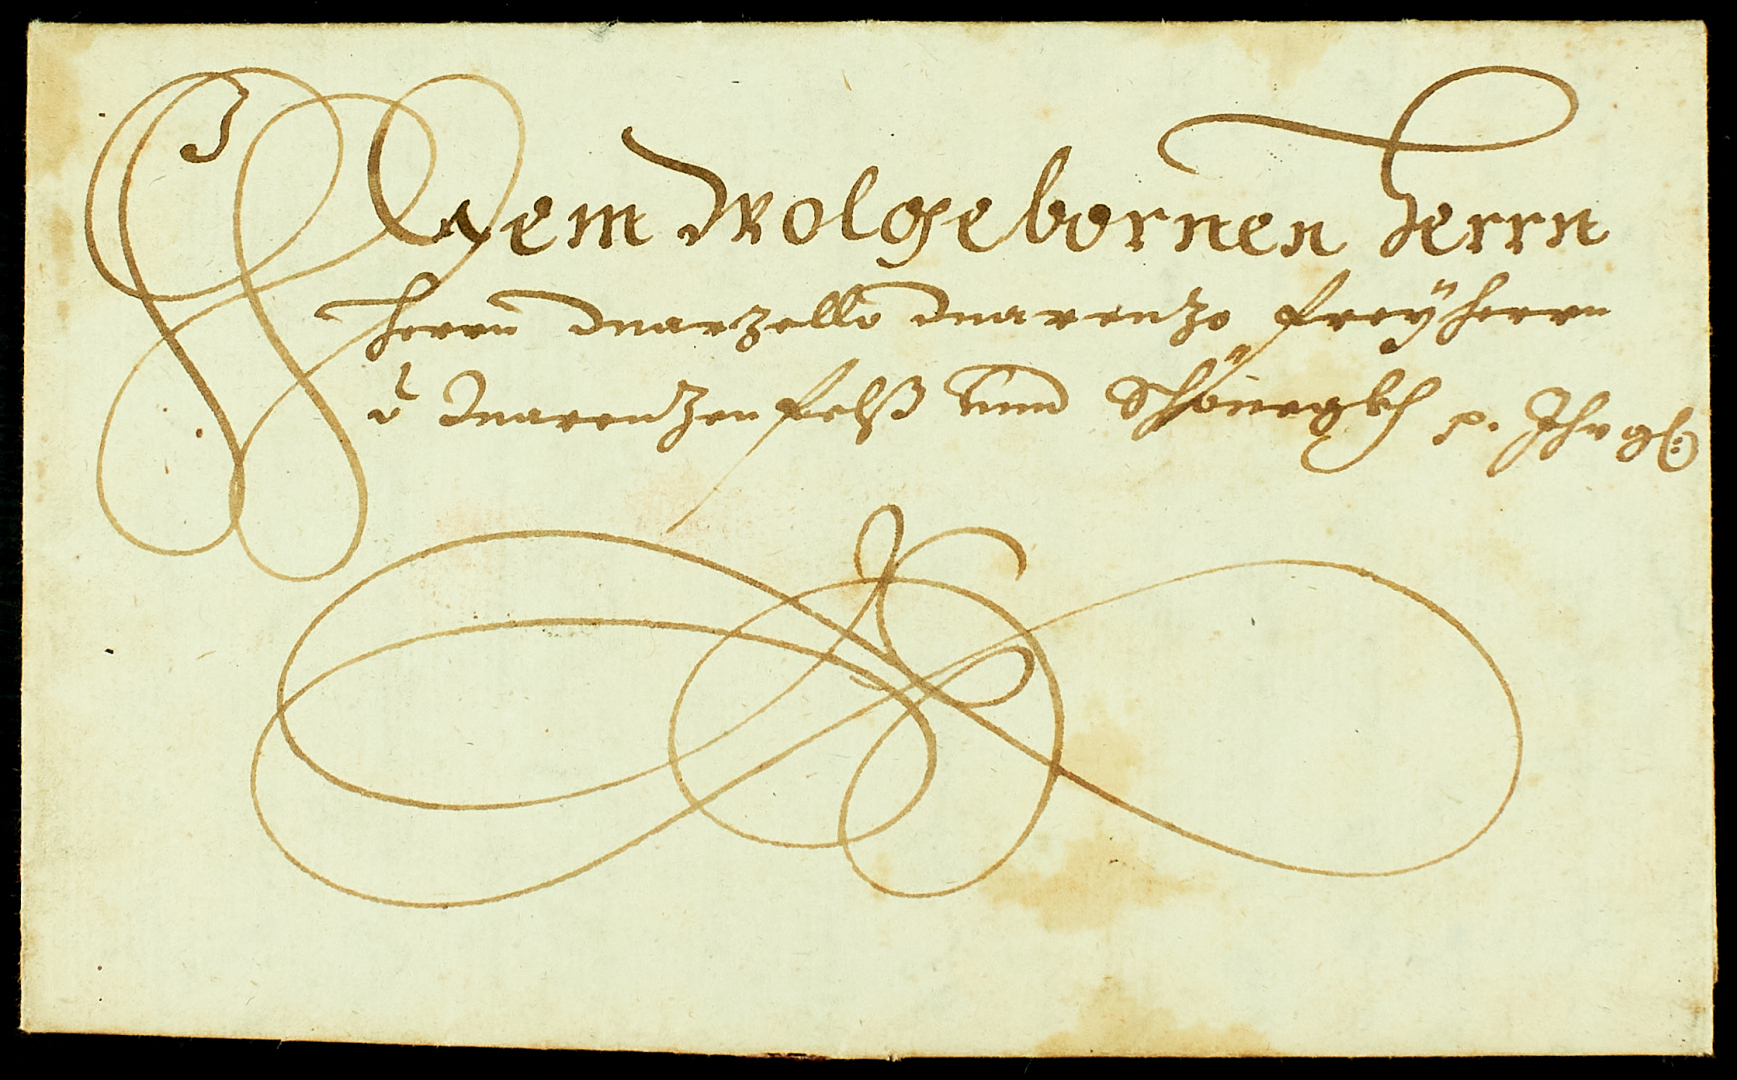 Dem Wolgebornen Herrn
Herrn Marzello Marenzo Freÿherrn
v Marenzenfelß vnd Schönegkh p. Ihr g: